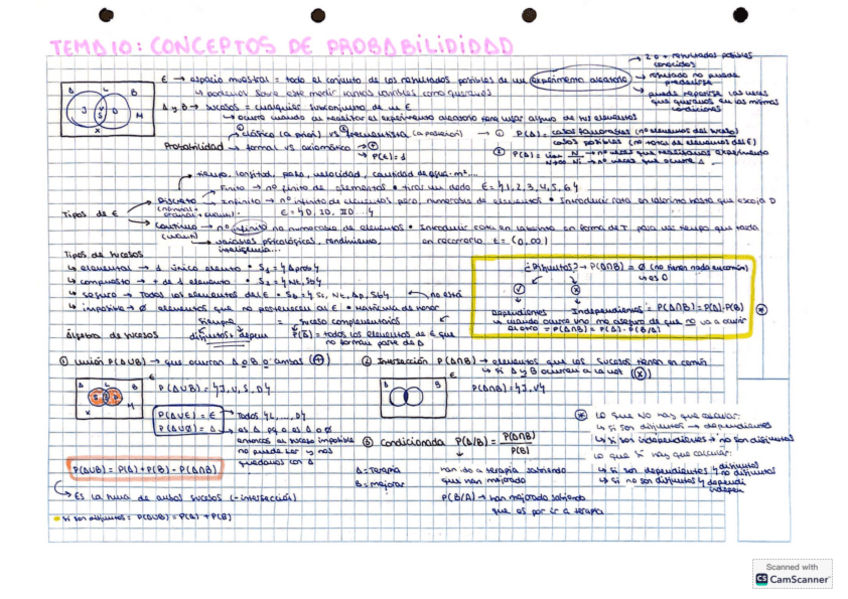 TEMA 10: CONCEPTOS DE PROBABILIDIDAD
E → espacio muestral = todo el conjunto de los resultados posibles de un experimento aleatorio
→ 2 o + resultados posibles conocidos
→ resultado no puede predecirse
→ puede repetirse las veces que queramos en las mismas condiciones
↳ podemos sobre este medir tantas variables como queramos
A y B → sucesos = cualquier subconjunto de un E
↳ ocurre cuando al realizar el experimento aleatorio tiene lugar alguno de sus elementos
① clásico (a priori) vs ② frecuentista (a posteriori)
Probabilidad → formal vs axiomático
→ P(E) = 1
① P(A) = casos favorables (nº elementos del suceso)
casos posibles (nº total de elementos del E)
② P(A) = lim N→∞
→ nº veces que ocurre A
→ tiempo, longitud, peso, velocidad, cantidad de agua · m²...
Tipos de E
Discreto
Finito → nº finito de elementos • tirar un dado E = {1, 2, 3, 4, 5, 6}
Infinito → nº infinito de elementos pero numerables de elementos • Introducir rata en laberinto hasta que escoja D
E = {D, ID, IID ...}
Continuo → nº infinito no numerables de elementos • Introducir rata en laberinto en forma de T para ver tiempo que tarda
en recorrerlo E = (0, ∞)
→ variables psicológicas, rendimiento, inteligencia...
Tipos de sucesos
↳ elemental → 1 único elemento • S₁ = {Aprob}
↳ compuesto → + de 1 elemento • S₂ = {Nt, Sb}
↳ seguro → Todos los elementos del E • S₃ = {Ss, Nt, Ap, Sb}
↳ imposible → 0 elementos que no pertenecen al E • matrícula de honor
→ no está
¿Disjuntos? → P(A∩B) = Ø (no tienen nada en común)
↳ es 0
Dependientes
Independientes = P(A∩B) = P(A)·P(B)
↳ cuando ocurre uno me aseguro de que no va a ocurrir
el otro = P(A∩B) = P(A)·P(B/A)
Siempre = suceso complementarios
Álgebra de sucesos
disjuntos + depen
P(A) = todos los elementos de E que
no forman parte de A
① Unión P(A∪B) → que ocurran A o B o ambos (+)
② Intersección P(A∩B) → elementos que los sucesos tienen en común
↳ si A y B ocurren a la vez (x)
P(A∪B) = {J, V, S, D}
P(A∩B) = {J, V}
P(A∪E) = E → Todos {L, ..., D}
P(A∪Ø) = A → es A pq o es A o Ø
entonces el suceso imposible
no puede ser y nos
quedamos con A
③ Condicionada P(A/B) = P(A∩B)
P(B)
P(A∪B) = P(A) + P(B) - P(A∩B)
↳ Es la suma de ambos sucesos (-intersección)
• si son disjuntos = P(A∪B) = P(A) + P(B)
A = Terapia
B = mejorar
han ido a terapia sabiendo
que han mejorado
P(B/A) → han mejorado sabiendo
que es por ir a terapia
Lo que NO hay que calcular:
↳ si son disjuntos → dependientes
↳ si son independientes → no son disjuntos
Lo que sí hay que calcular:
↳ si son dependientes
disjuntos
no disjuntos
↳ si no son disjuntos
dependi
indepen
Scanned with
CS CamScanner